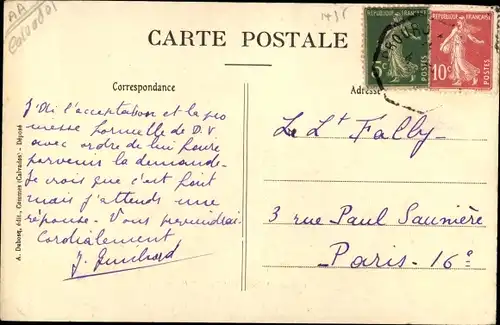 AA
Calvados
CARTE POSTALE
REPUBLIQUE FRANÇAISE
POSTES
REPUBLIQUE FRANÇAISE
10c
POSTES
Correspondance
Adresse
A. Dubosq, édit., Commes (Calvados) - Déposé
J'ai l'acceptation et la pro
messe formelle de D.V.
avec ordre de lui faire
parvenir la demande.
Je crois que c'est fait
mais j'attends une
réponse. Vous
Cordialement
J.
Le Lt Fally
3 rue Paul Saunière
Paris - 16e